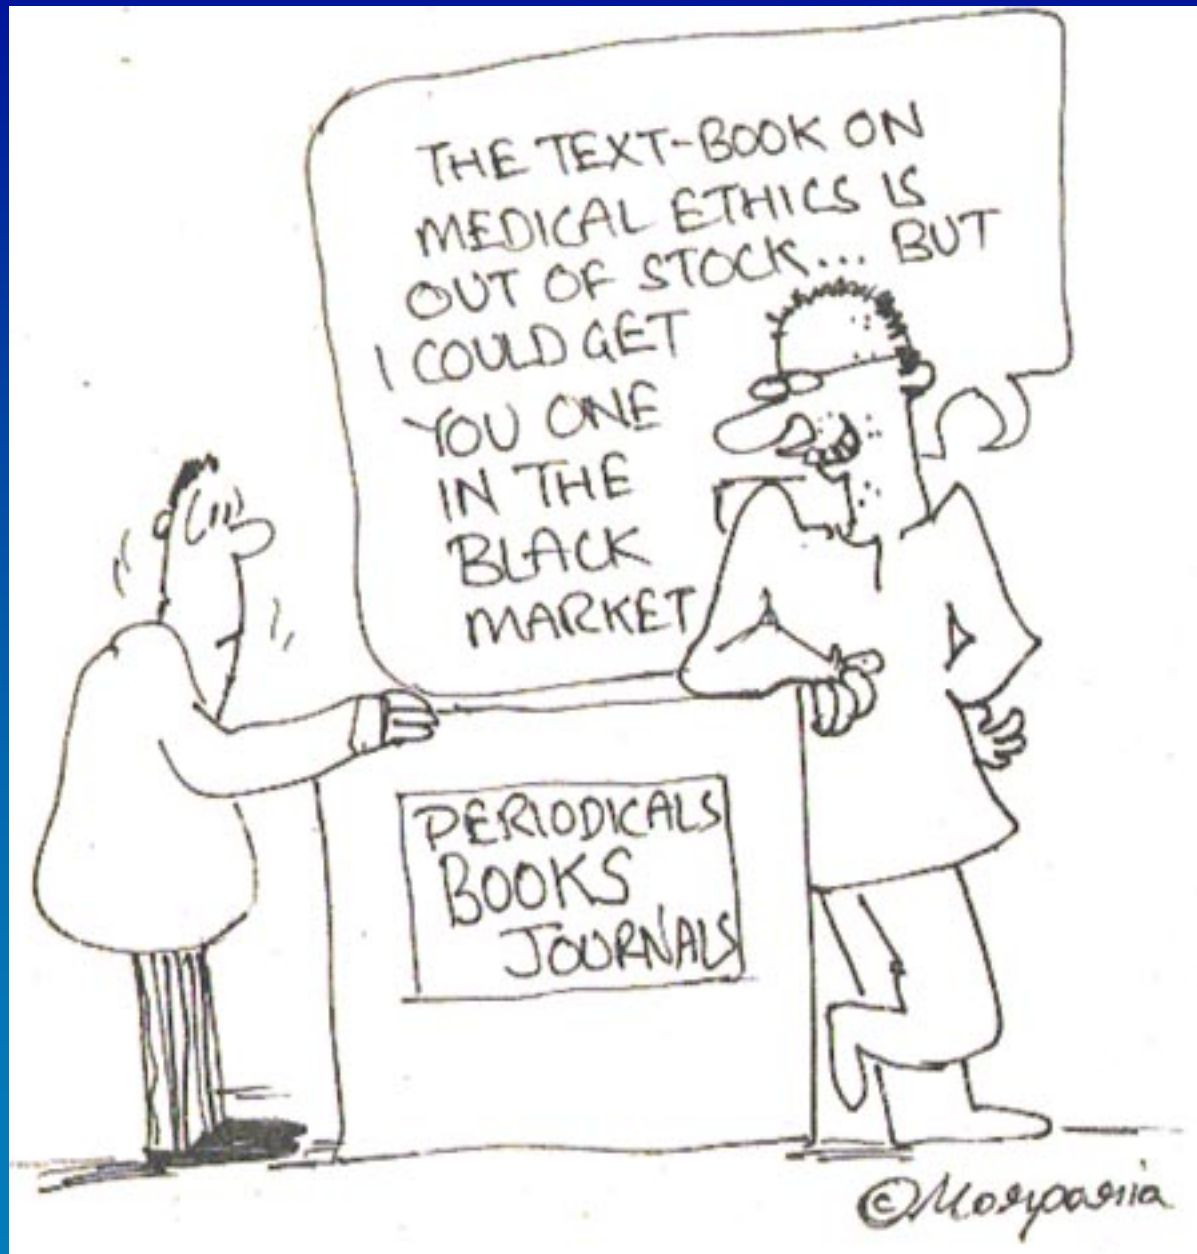 THE TEXT-BOOK ON
MEDICAL ETHICS IS
OUT OF STOCK... BUT
I COULD GET
YOU ONE
IN THE
BLACK
MARKET
PERIODICALS
BOOKS
JOURNALS
©Morparia